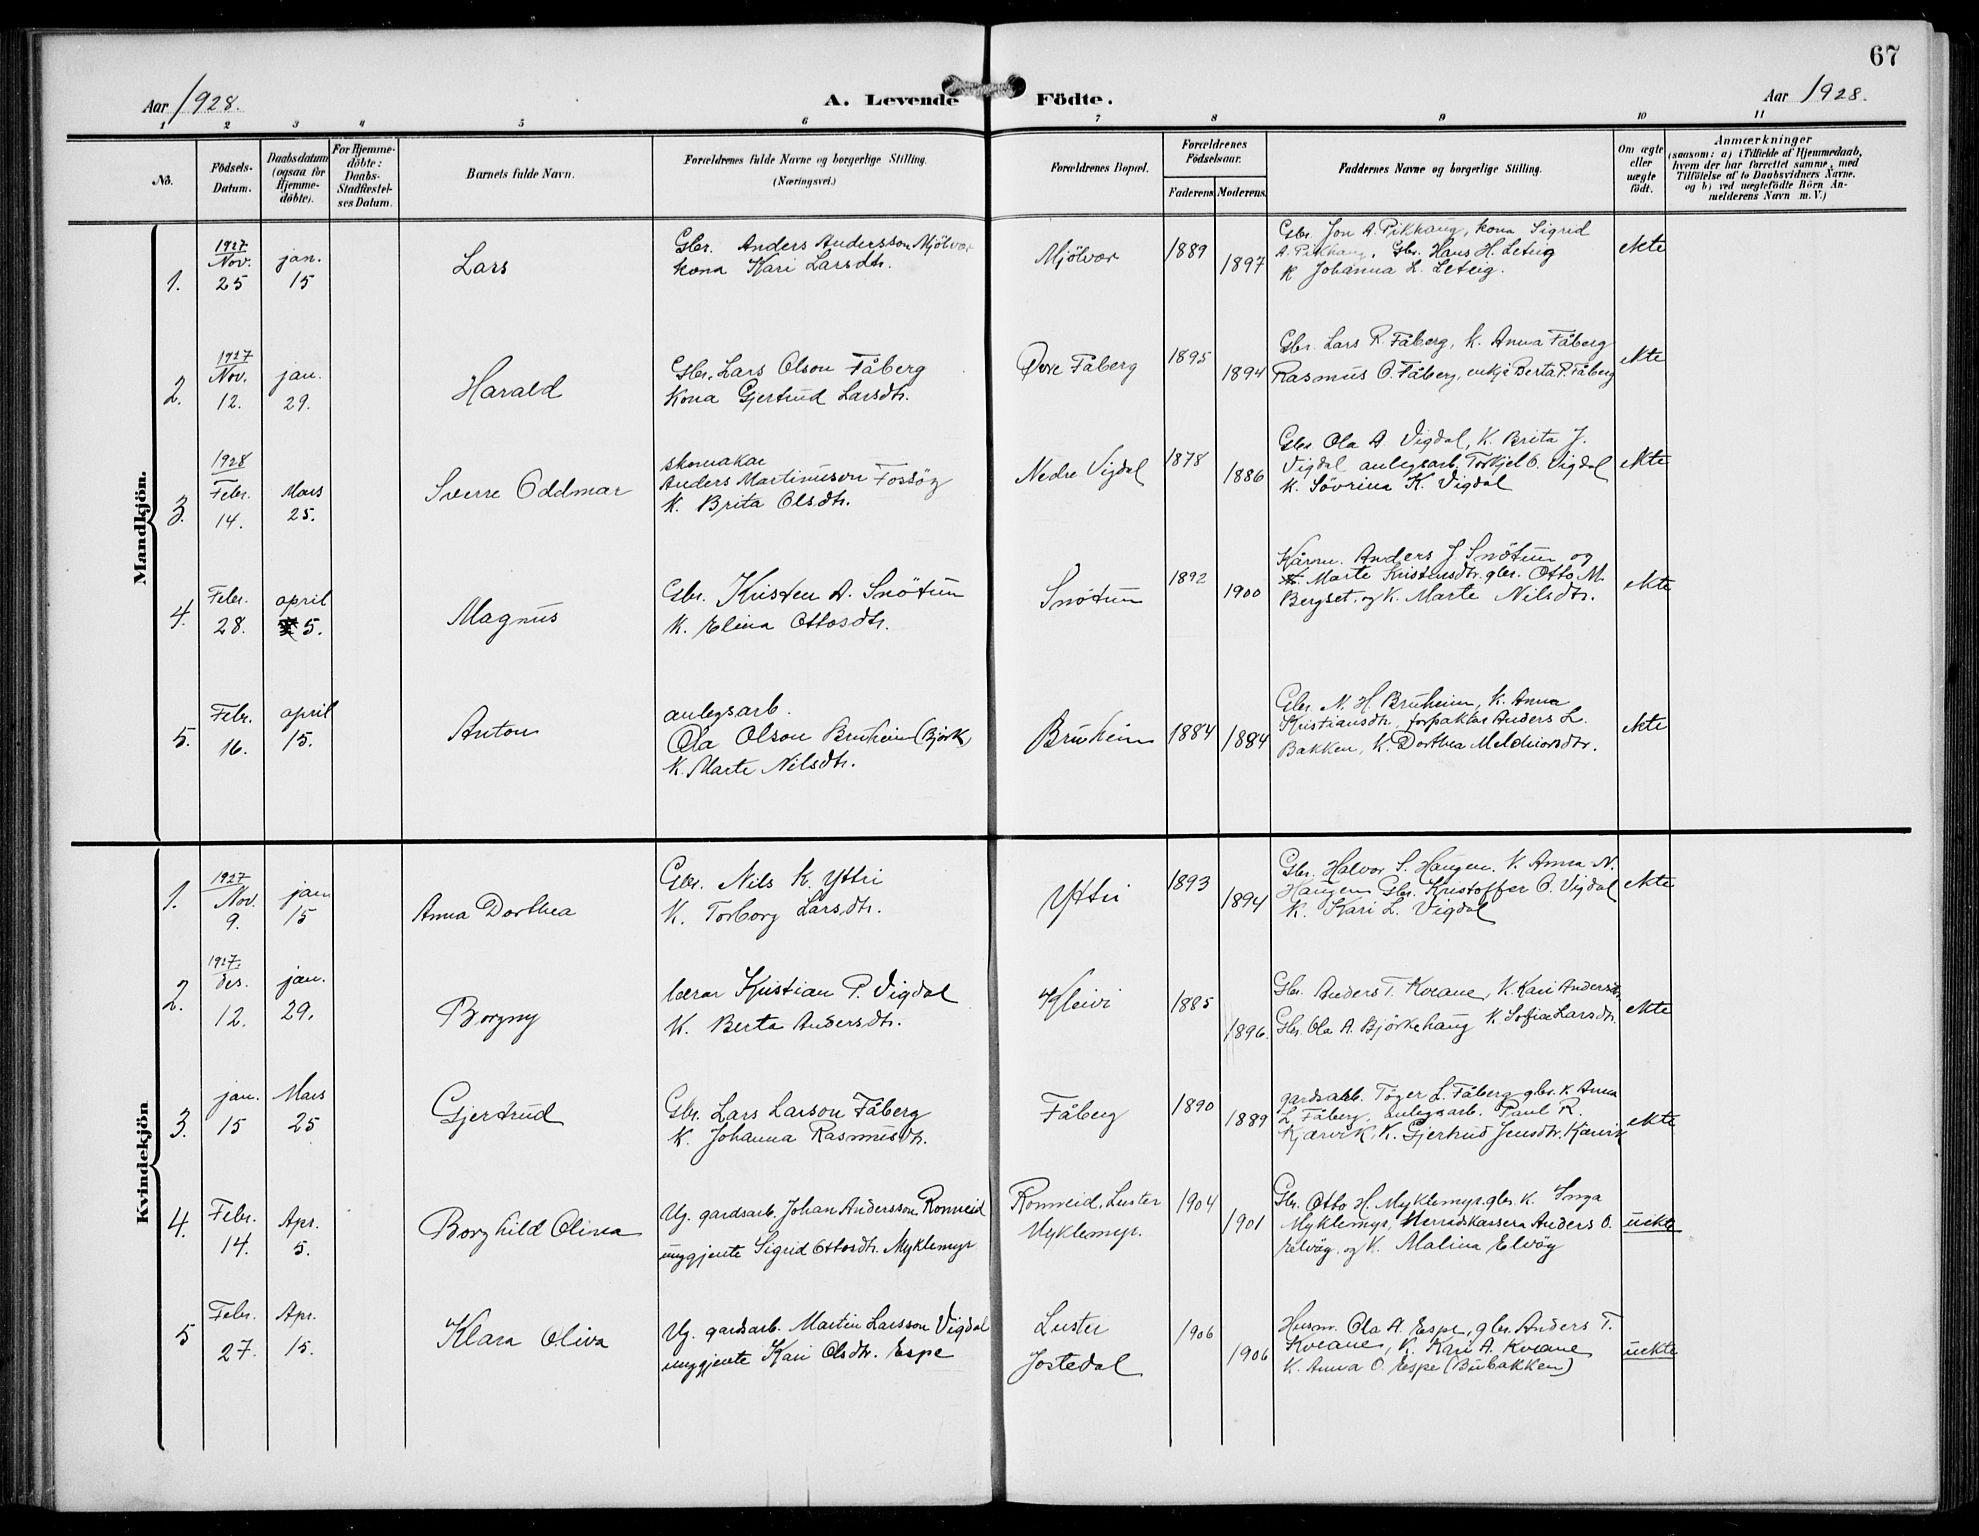 67
Aar 1928.
A. Levende Födte.
Aar 1928.
1 2 3 4 5 6 7 8 9 10 11
No.
Födsels-
Datum.
Daabsdatum
(ogsaa for
Hjemme-
döbte).
For Hjemme-
döbte:
Daabs-
Stadfæstel-
ses Datum.
Barnets fulde Navn.
Forældrenes fulde Navne og borgerlige Stilling.
(Næringsvei.)
Forældrenes Bopæl.
Forældrenes
Födselsaar.
Faderens Moderens
Faddernes Navne og borgerlige Stilling.
Om ægte
eller
uægte
födt.
Anmærkninger
(saasom: a) i Tilfælde af Hjemmedaab,
hvem der har forrettet samme, med
Tilföielse af to Daabsvidners Navne,
og b) ved uægtefödte Börn An-
melderens Navn m. V.)
Mandkjön.
1.
1927
Nov.
25
jan.
15
Lars
Gbr. Anders Andersson Mjölvær
kona Kari Larsdtr.
Mjölvær
1889
1897
Gbr. Jon A. Pikhaug, kona Sigrid
A. Pikhaug, Gbr. Hans H. Leteig
K Johanna L. Leteig.
ekte
2.
1927
Nov.
12.
jan.
29.
Harald
Gbr. Lars Olson Fåberg
Kona Gjertrud Larsdtr.
Øvre Fåberg
1895
1894
Gbr. Lars R. Fåberg, K. Anna Fåberg
Rasmus O. Fåberg, enkje Berta P. Fåberg
ekte
3.
1928
Febr.
14.
Mars
25.
Sverre Oddmar
skomakar
Anders Martinuson Fossöy
K. Brita Olsdtr.
Nedre Vigdal
1878
1886
Gbr Ola A. Vigdal, K. Brita J.
Vigdal anlegsarb. Torkjel O. Vigdal
K. Sövrina K. Vigdal
ekte
4.
Febr.
28.
april
5.
Magnus
Gbr. Kristen A. Snötun
K. Elina Ottosdtr.
Snötun
1892
1900
Kårm. Anders J Snötun og
K. Marte Kristensdtr. gbr. Otto M.
Bergset. og K. Marte Nilsdtr.
ekte
5.
Febr.
16.
april
15.
Anton
anlegsarb.
Ola Olson Bruheim (Bjørk)
K. Marte Nilsdtr.
Bruheim
1884
1884
Gbr. N. H. Bruheim, K. Anna
Kristiansdtr, forpaktar Anders L.
Bakken, K. Dorthea Melchiorsdtr.
ekte
Kvindekjön
1.
1927
Nov.
9.
jan
15
Anna Dorthea
Gbr. Nils K. Yttri
K. Torborg Larsdtr.
Yttri
1893
1894
Gbr. Halvor S. Haugen. K. Anna N.
Haugen Gbr. Kristoffer O. Vigdal
K. Kari L. Vigdal
ekte
2
1927
des.
12.
jan.
29.
Borgny
lærar Kristian P. Vigdal
K. Berta Andersdtr.
Kleivi
1885
1896.
Gbr. Anders T. Kveane, K. Kari Andersdtr.
Gbr. Ola A. Bjørkehaug K. Sofie Larsdtr.
ekte
3.
jan.
15
Mars
25
Gjertrud
Gbr. Lars Larson Fåberg
K. Johanna Rasmusdtr.
Fåberg
1890
1889
gardsarb. Töger L. Fåberg gbr. K Anna
L Fåberg, anlegsarb. Paul R.
Kjærvik, K. Gjertrud Jensdtr. Kjærvik
ekte
4.
Febr.
14.
Apr.
5.
Borghild Olina
Ug. gardsarb. Johan Andersson Ronneid
ungjente Sigrid Ottosdtr. Myklemyr
Ronneid, Luster
Myklemyr.
1904
1901
Gbr. Otto H. Myklemyr. gbr. K. Inga
Myklemyr, Herradskassera Anders O.
Elvöy, og K. Malina Elvöy
uekte
5
Febr.
27.
Apr.
15.
Klara Oliva
Ug. gardsarb. Martin Larsson Vigdal
ungjente Kari Olsdtr. Espe
Luster
Jostedal
1906
1906
Husm. Ola A. Espe, gbr. Anders T.
Kveane, K. Kari A. Kveane
K. Anna O. Espe (Bubakken)
uekte